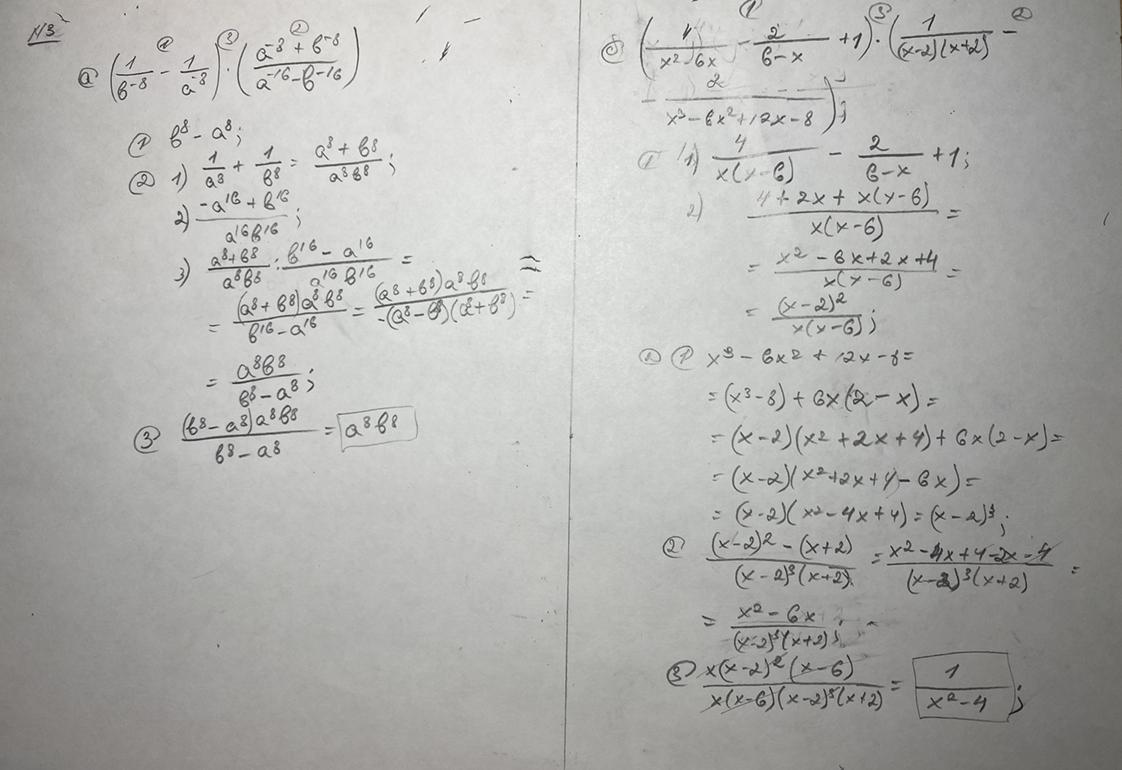 N3
а) (1/b⁻⁸ - 1/a⁻⁸) · ((a⁻⁸ + b⁻⁸)/(a⁻¹⁶ - b⁻¹⁶))
① b⁸ - a⁸;
② 1) 1/a⁸ + 1/b⁸ = (a⁸ + b⁸)/(a⁸b⁸);
2) (-a¹⁶ + b¹⁶)/(a¹⁶b¹⁶);
3) (a⁸+b⁸)/(a⁸b⁸) : (b¹⁶ - a¹⁶)/(a¹⁶b¹⁶) =
= ((a⁸ + b⁸)a⁸b⁸)/(b¹⁶ - a¹⁶) = ((a⁸ + b⁸)a⁸b⁸)/(-(a⁸ - b⁸)(a⁸ + b⁸)) =
= (a⁸b⁸)/(b⁸ - a⁸);
③ ((b⁸ - a⁸)a⁸b⁸)/(b⁸ - a⁸) = a⁸b⁸
б) (4/(x² - 6x) - 2/(6-x) + 1) · (1/((x-2)(x+2)) -
- 2/(x³ - 6x² + 12x - 8));
1) 4/(x(x-6)) - 2/(6-x) + 1;
2) (4 + 2x + x(x-6))/(x(x-6)) =
= (x² - 6x + 2x + 4)/(x(x-6)) =
= (x-2)²/(x(x-6));
② ① x³ - 6x² + 12x - 8 =
= (x³ - 8) + 6x(2 - x) =
= (x-2)(x² + 2x + 4) + 6x(2 - x) =
= (x-2)(x² + 2x + 4 - 6x) =
= (x-2)(x² - 4x + 4) = (x-2)³;
② ((x-2)² - (x+2))/((x-2)³(x+2)) = (x² - 4x + 4 - 2x - 4)/((x-2)³(x+2)) =
= (x² - 6x)/((x-2)³(x+2));
③ (x(x-2)²(x-6))/(x(x-6)(x-2)³(x+2)) = 1/(x² - 4);